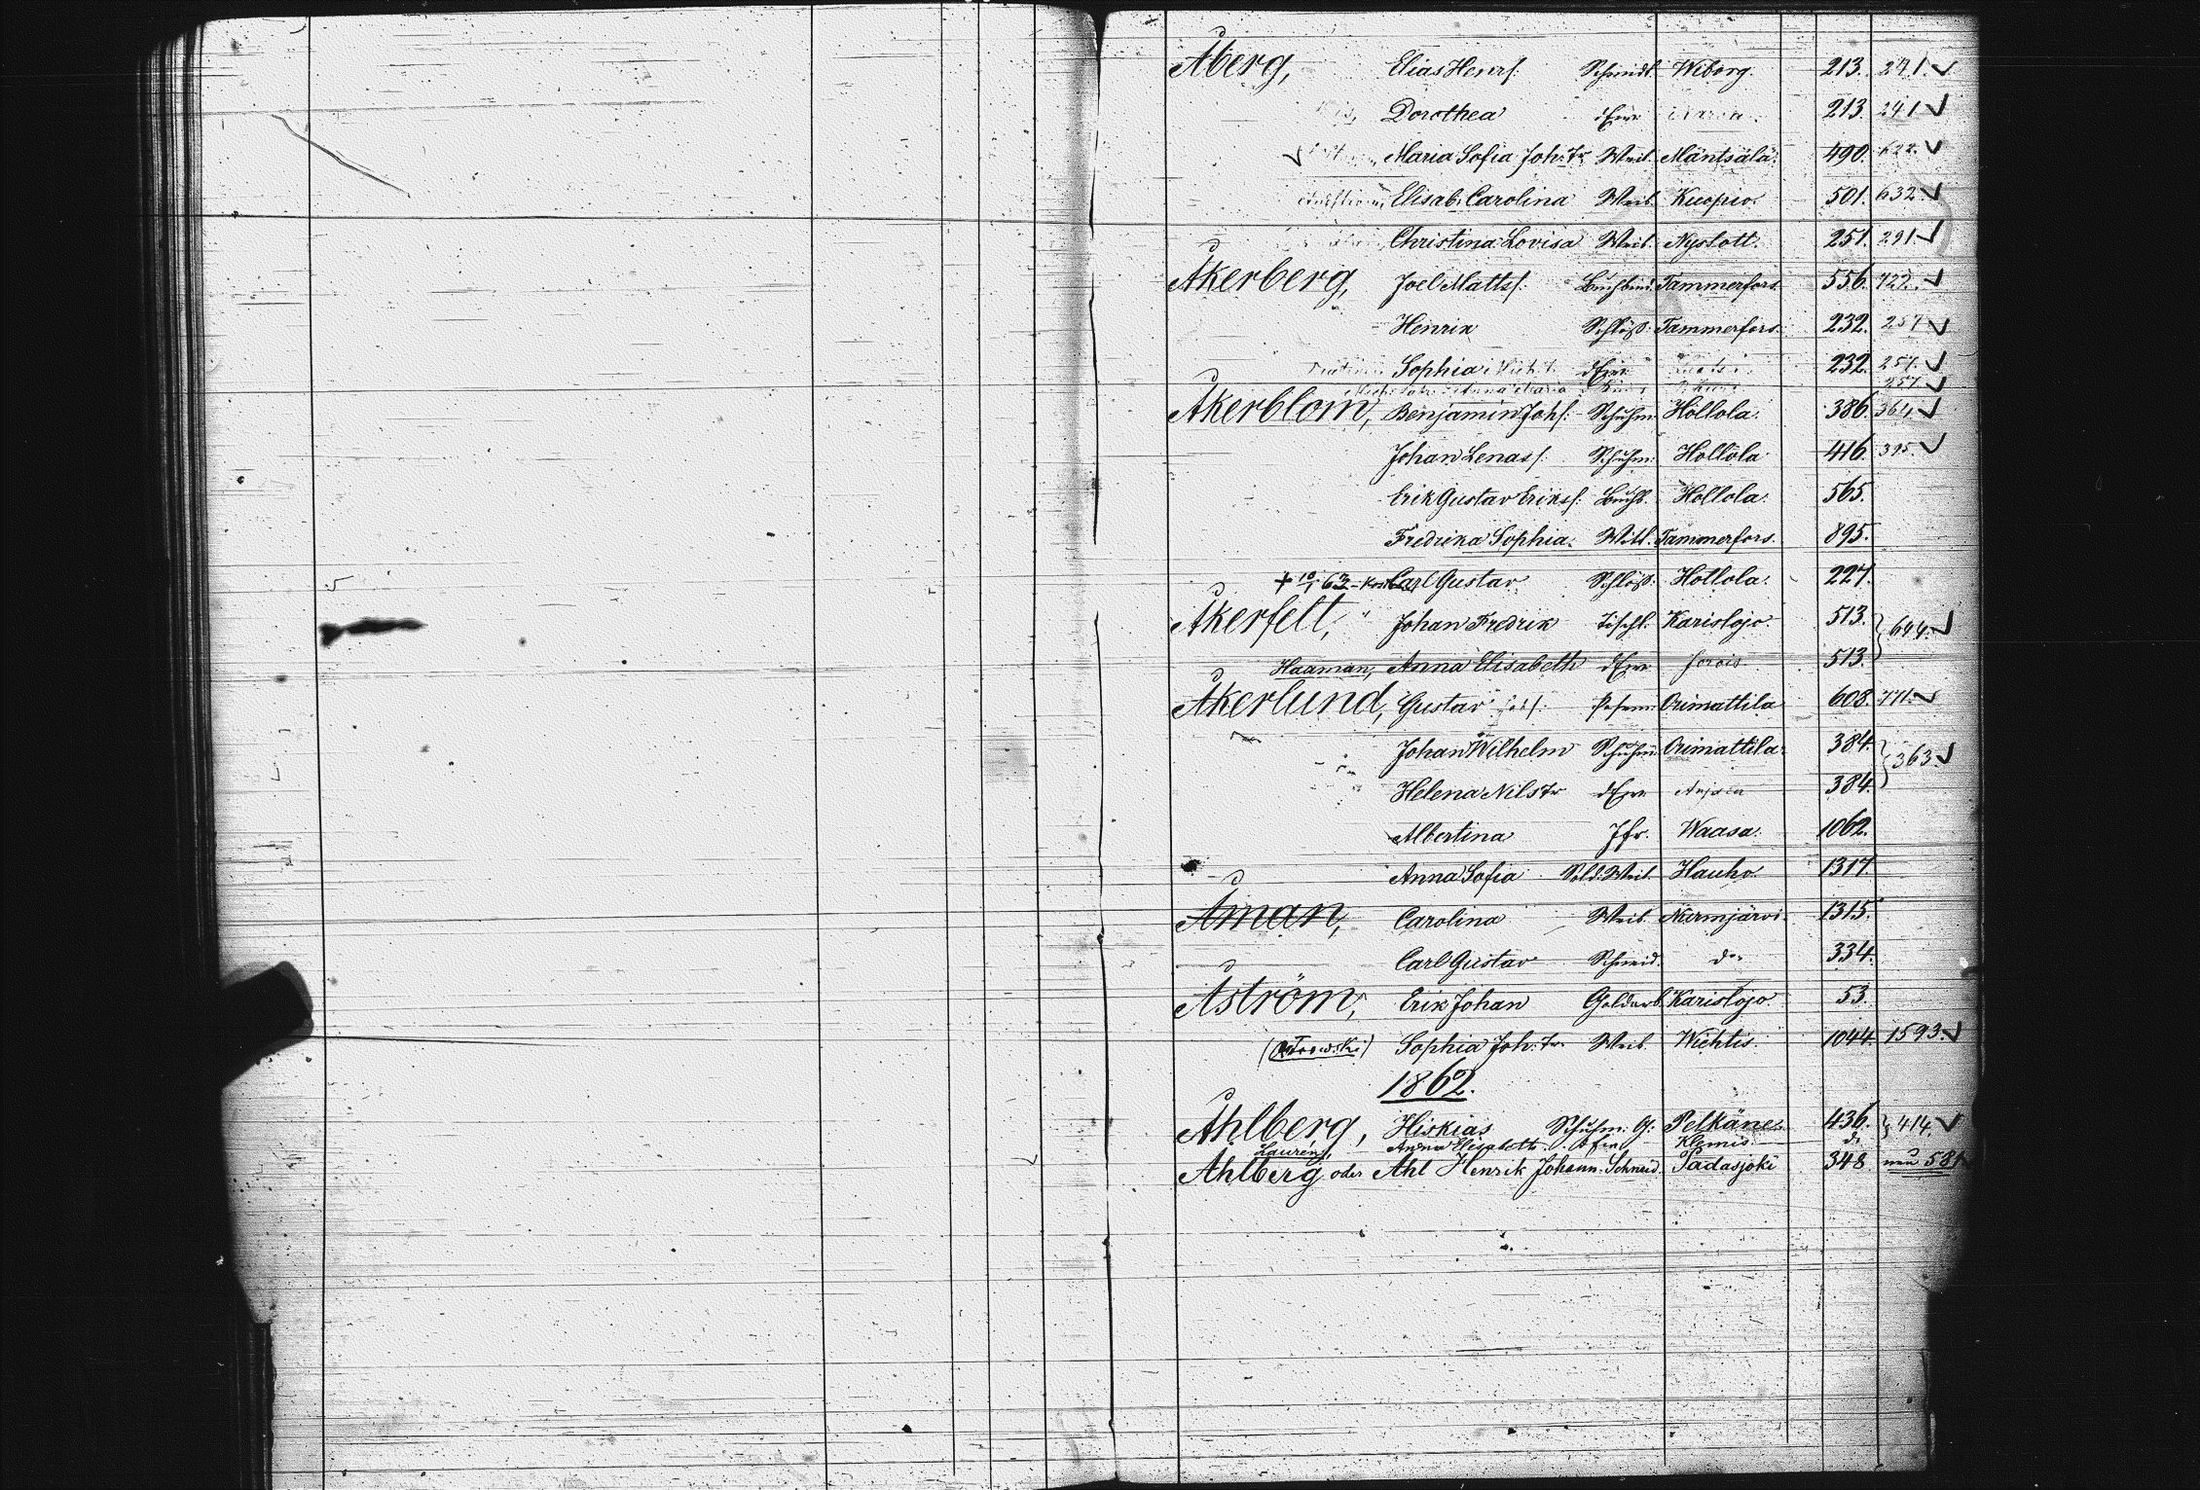 Åberg, Elias Henrs. Schmidt. Wiborg. 213. 241.
Dorothea dEfr. 213. 241
Maria Sofia Joh:Tr Weib. Mäntsälä. 490. 622.
Elisab. Carolina Weib. Kuopio. 501. 632.
Christina Lovisa Weib. Nyslott. 251. 291.
Åkerberg, Joel Matts. Buchbind. Tammerfors 556. 727.
Henrik Schloß. Tammerfors. 232. 257
Sophia dEfr. 232. 257.
Anna Maria 257
Åkerblom, Benjamin Johs. Schuhm. Hollola. 386. 364.
Johan Lenas. Schuhm. Hollola. 416. 395.
Erik Gustav Eriks. Buchb. Hollola. 565.
Fredrika Sophia. Witt. Tammerfors. 895.
+ 10/1 63 Carl Gustav Schloß. Hollola. 227.
Åkerfelt, Johan Fredrik Tischl. Karislojo. 513. } 644.
Haaman, Anna Elisabeth dEfr. Jorois 513.
Åkerlund, Gustav Orimattila 608. 771.
Johan Wilhelm Schuhm. Orimattila. 384. } 363.
Helena Nils Tr dEfr. 384.
Albertina Jfr. Waasa. 1062.
Anna Sofia Sold. Weib. Hauho. 1317.
Åman, Carolina Weib. Nurmjärvi. 1315.
Carl Gustav Schmid. do 334.
Åström, Erik Johan Goldarb. Karislojo 53.
Sophia Joh:Tr. Weib. Wichtis. 1044. 1593.
1862.
Åhlberg, Hiskias Schuhm. G: Pelkäne. 436. } 414.
Lauren, Anna Elisabeth. dEfr. Klemis. do
Ahlberg oder Ahl Henrik Johann. Schneid. Padasjoki 348 neu 581